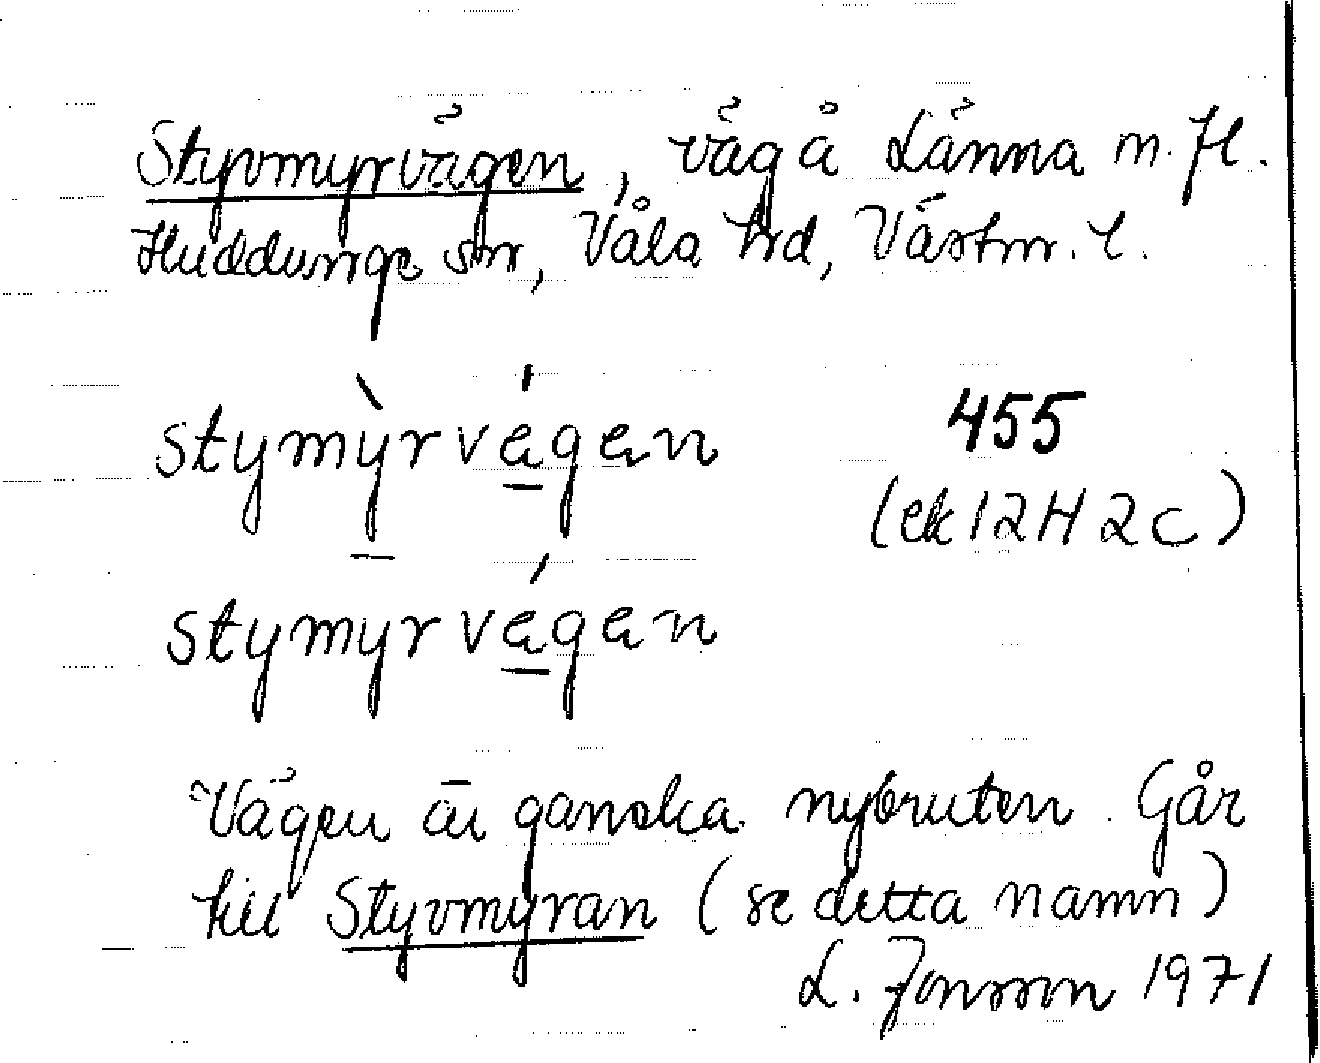 Styvmyrvägen, väg å Länna m. fl.
Huddunge sn, Våla hd, Västm. l.
stymỳrvä́gen 455
(ek 12H 2c)
stymyrvä́gen
Vägen är ganska nybruten. Går
till Styvmyran (se detta namn)
L. Jonsson 1971